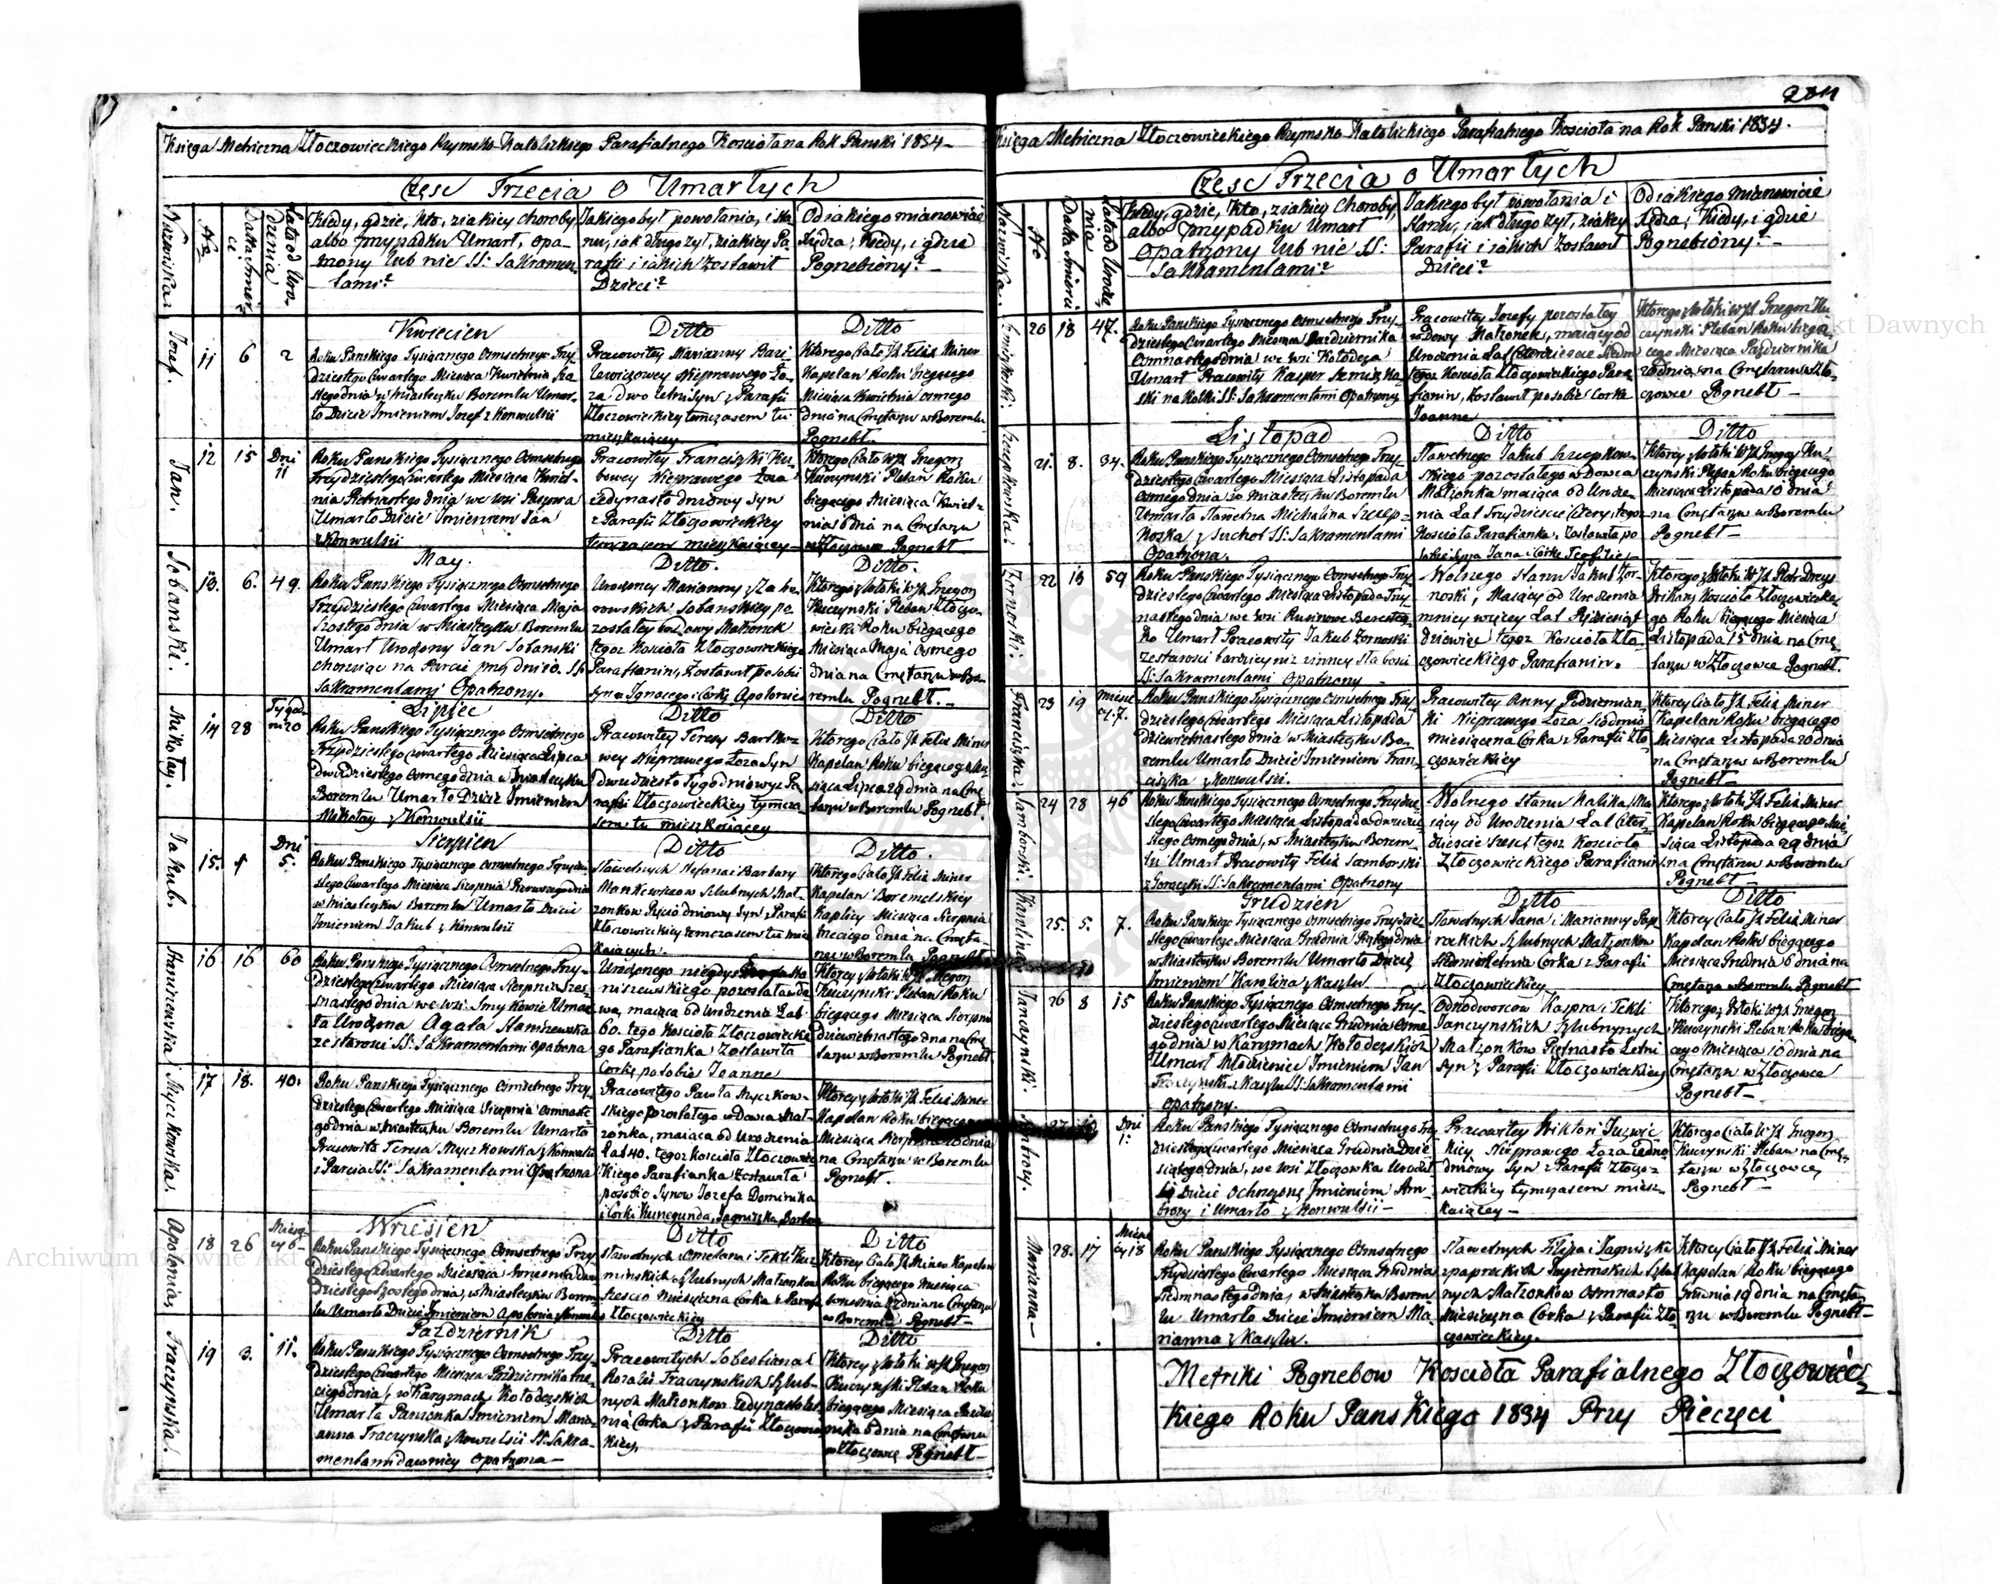 204
Księga Metriczna Złoczowieckiego Rzymsko Katolickiego Parafialnego Koscioła na Rok Panski 1834
Częsc Trzecia o Umarłych
Nazwiska
No
Data Smierci
Lata od Urodzenia
Kiedy, gdzie, kto, z iakiey choroby
albo przypadku Umarł, opa-
trzony lub nie SS: Sakramen-
tami?
Jakiego był powołania, i sta-
nu, jak długo żył, z iakiey Pa-
rafii i iakich zostawił
Dzieci?
Od iakiego mianowicie
Xiędza, kiedy, i gdzie
Pogrzebiony?
Jozef.
11 6 2
Kwiecien
Roku Panskiego Tysiącznego Osmsetnego Trzy-
dziestego Czwartego Miesiąca Kwietnia Szo-
stego dnia w Miasteczku Boremlu Umar-
ło Dziecie Imieniem Jozef z Konwulsii
Ditto
Pracowitey Marianny
Nieprawego Ło-
ża dwo letni Syn z Parafii
Złoczowieckiey tymczasem tu
mieszkaiącey
Ditto
Ktorego Ciało JX Felix Miner
Kapelan Roku bieżącego
Miesiąca Kwietnia osmego
dnia na Cmętarzu w Boremlu
Pogrzebł
Jan.
12 15 Dni 11
Roku Panskiego Tysiącznego Osmsetnego
Trzydziestego Czwartego Miesiąca Kwiet-
nia Pietnastego dnia we wsi
Umarło Dziecie Imieniem Jan
z Konwulsii
Pracowitey Franciszki
Nieprawego Łoża
iedynasto dniowy Syn
z Parafii Złoczowieckiey
tymczasem mieszkaiącey
Ktorego Ciało WJX Gregorz
Kuczynski Pleban Roku
bieżącego Miesiąca Kwiet-
nia 16 dnia na Cmętarzu
w Złoczowce Pogrzebł
Sobanski.
13. 6. 49.
May.
Roku Panskiego Tysiącznego Osmsetnego
Trzydziestego Czwartego Miesiąca Maja
Szostego dnia w Miasteczku Boremlu
Umarł Urodzony Jan Sobanski
choruiąc na Parcie SS:
Sakramentami Opatrzony.
Ditto.
Urodzoney Marianny z
Sobanskiey po-
zostałey wdowy Małżonek
tegoż Kosciola Złoczowieckiego
Parafianin, Zostawił po sobie
Syna Ignacego i Corkę Apolonie
Ditto.
Ktorego zwłoki WJX Gregorz
Kuczynski Pleban Złoczo-
wiecki Roku bieżącego
Miesiąca Maja Osmego
dnia na Cmętarzu w Bo-
remlu Pogrzebł.
Mikołay.
14 28 Tygodni 20
Lipiec
Roku Panskiego Tysiącznego Osmsetnego
Trzydziestego Czwartego Miesiąca Lipca
dwudziestego Osmego dnia w Miasteczku
Boremlu Umarło Dziecie Imieniem
Mikołay z Konwulsii
Ditto
Pracowitey Teresy
Nieprawego Łoża Syn
dwudziesto Tygodniowy z Pa-
rafii Złoczowieckiey tymcza-
sem tu mieszkaiącey
Ditto
Ktorego Ciało JX Felix Miner
Kapelan Roku bieżącego Mie-
siąca Lipca 29 dnia na Cmę-
tarzu w Boremlu Pogrzebł.
Jakub.
15. 1 Dni 5.
Sierpien
Roku Panskiego Tysiącznego Osmsetnego Trzydzie-
stego Czwartego Miesiąca Sierpnia Pierwszego dnia
w Miasteczku Boremlu Umarło Dziecie
Imieniem Jakub z Konwulsii
Ditto
Sławetnych Stefana i Barbary
Slubnych Mał-
żonkow Pięcio dniowy Syn z Parafii
Złoczowieckiey tymczasem tu miesz-
kaiących.
Ditto.
Ktorego Ciało JX Felix Miner
Kapelan Boremelskiey
Kaplicy Miesiąca Sierpnia
trzeciego dnia na Cmęta-
rzu w Boremlu Pogrzebł
16 16 60
Roku Panskiego Tysiącznego Osmsetnego Trzy-
dziestego Czwartego Miesiąca Sierpnia Szes-
nastego dnia we wsi Smykowie Umar-
ła Urodzona Agata
ze starosci SS: Sakramentami opatrzona
Urodzonego niegdys
pozostała wdo-
wa, maiąca od Urodzenia Lat
60. tego Kosciola Złoczowieckie-
go Parafianka Zostawiła
Corkę po sobie Joanne
Ktorey zwłoki WJX Gregorz
Kuczynski Pleban Roku
bieżącego Miesiąca Sierpnia
dziewietnastego dnia na Cmę-
tarzu w Boremlu Pogrzebł
Myczkowska.
17 18. 40.
Roku Panskiego Tysiącznego Osmsetnego Trzy-
dziestego Czwartego Miesiąca Sierpnia Osmnaste-
go dnia w Miasteczku Boremlu Umarła
Pracowita Teresa Myczkowska z Konwulsii
i Parcia SS: Sakramentami Opatrzona
Pracowitego Pawła Myczkow-
skiego pozostałego wdowca Mał-
żonka, maiąca od Urodzenia
Lat 40. tegoż Kosciola Złoczowiec-
kiego Parafianka Zostawiła
po sobie Synow Jozefa Dominika
i Corki Kunegunda, Jagnieszka, Barbara
Ktorey zwłoki JX Felix Miner
Kapelan Roku bieżącego
Miesiąca Sierpnia 20 dnia
na Cmętarzu w Boremlu
Pogrzebł.
Apolonia.
18 26 Miesięcy 6
Wrzesien
Roku Panskiego Tysiącznego Osmsetnego Trzy-
dziestego Czwartego Miesiąca Wrzesnia Dwu-
dziestego Szostego dnia, w Miasteczku Borem-
lu Umarło Dziecie Imieniem Apolonia z Konwulsii
Ditto
Sławetnych i Tekli
Slubnych Małżonkow
Szescio Miesięczna Corka z Parafii
Złoczowieckiey
Ditto
Ktorey Ciało JX Miner Kapelan
Roku bieżącego Miesiąca
Wrzesnia 27 dnia na Cmętarzu
w Boremlu Pogrzebł
Traczynska.
19 3. 11.
Pazdziernik
Roku Panskiego Tysiącznego Osmsetnego Trzy-
dziestego Czwartego Miesiąca Pazdziernika trze-
ciego dnia, w Karczmach Kołodeżskich
Umarła Panienka Imieniem Mari-
anna Traczynska z Konwulsii SS: Sakra-
mentami dawniey Opatrzona
Ditto
Pracowitych Sobestiana i
Rozalii Traczynskich Slub-
nych Małżonkow iedynasto let-
nia Corka z Parafii Złoczowiec-
kiey.
Ditto
Ktorey zwłoki WJX Gregorz
Kuczynski Pleban Roku
bieżącego Miesiąca Pazdzier-
nika 6 dnia na Cmętarzu
w Złoczowce Pogrzebł
Księga Metriczna Złoczowieckiego Rzymsko Katolickiego Parafialnego Kosciola na Rok Panski 1834.
Częsc Trzecia o Umarłych
Nazwiska
No
Data Smierci
Lata od Urodzenia
Kiedy, gdzie, kto, z iakiey choroby,
albo Przypadku Umarł
Opatrzony lub nie SS:
Sakramentami?
Jakiego był powołania i
stanu, jak długo żył, z iakiey
Parafii i iakich zostawił
Dzieci?
Od iakiego mianowicie
Xiędza, kiedy, i gdzie
Pogrzebiony?
20 18 47.
Roku Panskiego Tysiącznego Osmsetnego Trzy-
dziestego Czwartego Miesiąca Pazdziernika
Osmnastego dnia we wsi Kołodeża
Umarł Pracowity Kasper
na Kolki SS: Sakramentami Opatrzony
Pracowitey Jozefy pozostałey
wdowy Małżonek, maiący od
Urodzenia Lat Czterdziesci Siedm
tegoż Kosciola Złoczowieckiego Para-
fianin, Zostawił po sobie Corke
Joanne
Ktorego zwłoki WJX Gregorz Ku-
czynski Pleban Roku bieżą-
cego Miesiąca Pazdziernika
20 dnia na Cmętarzu w Zło-
czowce Pogrzebł
Szczepkowska
21. 8. 34.
Listopad
Roku Panskiego Tysiącznego Osmsetnego Trzy-
dziestego Czwartego Miesiąca Listopada
Osmego dnia w Miasteczku Boremlu
Umarła Sławetna Michalina Szczep-
kowska z Suchot SS: Sakramentami
Opatrzona.
Ditto
Sławetnego Jakub Szczepkow-
skiego pozostałego wdowca
Małżonka maiąca od Urodze-
nia Lat Trzydziesci Cztery, tegoż
Kosciola Parafianka, Zostawiła po
sobie Syna Jana i Corke Teofilie
Ditto
Ktorey zwłoki WJX Gregorz Ku-
czynski Pleban Roku bieżącego
Miesiąca Listopada 10 dnia
na Cmętarzu w Boremlu
Pogrzebł
Żornoski.
22 13 59
Roku Panskiego Tysiącznego Osmsetnego Trzy-
dziestego Czwartego Miesiąca Listopada Trzy-
nastego dnia we wsi Rusinowe
Umarł Pracowity Jakub Żornoski
ze starosci bardziey niż z inney słabosci
SS: Sakramentami Opatrzony
Wolnego stanu Jakub Żor-
noski, Maiący od Urodzenia
mniey więcey Lat Pięćdziesiąt
dziewięć tegoż Kosciola Zło-
czowieckiego Parafianin.
Ktorego zwłoki WJX Piotr
Wikary Kosciola Złoczowieckie-
go Roku bieżącego Miesiąca
Listopada 15 dnia na Cmę-
tarzu w Złoczowce Pogrzebł.
Franciszka.
23 19 Miesięcy 7.
Roku Panskiego Tysiącznego Osmsetnego Trzy-
dziestego Czwartego Miesiąca Listopada
Dziewietnastego dnia w Miasteczku Bo-
remlu Umarło Dziecie Imieniem Fran-
ciszka z Konwulsii.
Pracowitey Anny
Nieprawego Łoża Siedmio
miesięczna Corka z Parafii Zło-
czowieckiey
Ktorey Ciało JX Felix Miner
Kapelan Roku bieżącego
Miesiąca Listopada 20 dnia
na Cmętarzu w Boremlu
Pogrzebł
Samborski.
24 28 46
Roku Panskiego Tysiącznego Osmsetnego Trzydzie-
stego Czwartego Miesiąca Listopada dwudzie-
stego Osmego dnia, w Miasteczku Borem-
lu Umarł Pracowity Felix Samborski
z Gorączki SS: Sakramentami Opatrzony
Wolnego Stanu Kalika, Ma-
iący od Urodzenia Lat Czter-
dziescie Szesc tegoż Kosciola
Złoczowieckiego Parafianin
Ktorego zwłoki JX Felix Miner
Kapelan Roku bieżącego Mie-
siąca Listopada 29 dnia
na Cmętarzu w Boremlu
Pogrzebł
Karolina.
25. 5. 7.
Grudzien
Roku Panskiego Tysiącznego Osmsetnego Trzydzie-
stego Czwartego Miesiąca Grudnia Piątego dnia
w Miasteczku Boremlu Umarło Dziecie
Imieniem Karolina z Kaszlu
Ditto
Sławetnych Jana i Marianny
Slubnych Małżonkow
Siedmioletnia Corka z Parafii
Złoczowieckiey
Ditto
Ktorey Ciało JX Felix Miner
Kapelan Roku bieżącego
Miesiąca Grudnia 6 dnia na
Cmętarzu w Boremlu Pogrzebł
Janczynski.
26 8 15
Roku Panskiego Tysiącznego Osmsetnego Trzy-
dziestego Czwartego Miesiąca Grudnia Osme-
go dnia w Karczmach Kołodeżskich
Umarł Młodzieniec Imieniem Jan
z Kaszlu SS: Sakramentami
Opatrzony.
Odnodworcow Kaspra i Tekli
Janczynskich Slubnynych
Małżonkow Pietnasto Letni
Syn z Parafii Złoczowieckiey
Ktorego zwłoki WJX Gregorz
Kuczynski Pleban Roku bieżą-
cego Miesiąca 10 dnia na
Cmętarzu w Złoczowce
Pogrzebł
Ambroży.
27 10 Dni 1.
Roku Panskiego Tysiącznego Osmsetnego Trzy-
dziestego Czwartego Miesiąca Grudnia Dzie-
siątego dnia, we wsi Złoczowka Urodzi-
ło Dziecie Ochrzczone Imieniem Am-
broży i Umarło z Konwulsii
Pracowitey Wiktori
Nieprawego Łoża iedno-
dniowy Syn z Parafii Złoczo-
wieckiey tymczasem miesz-
kaiącey
Ktorego Ciało WJX Gregorz
Kuczynski Pleban na Cmę-
tarzu w Złoczowce,
Pogrzebł
Marianna
28. 17 Miesięcy 18
Roku Panskiego Tysiącznego Osmsetnego
Trzydziestego Czwartego Miesiąca Grudnia
Siedmnastego dnia, w Miasteczku Borem-
lu Umarło Dziecie Imieniem Ma-
rianna z Kaszlu.
Sławetnych Filipa i Jagnieszki
Slub-
nych Małżonkow Osmnasto
Miesięczna Corka z Parafii Zło-
czowieckiey.
Ktorey Ciało JX Felix Miner
Kapelan Roku bieżącego
Grudnia 19 dnia na Cmęta-
rzu w Boremlu Pogrzebł
Metriki Pogrzebow Kosciola Parafialnego Złoczowiec-
kiego Roku Panskiego 1834 Przy Pieczęci
Archiwum Główne Akt Dawnych